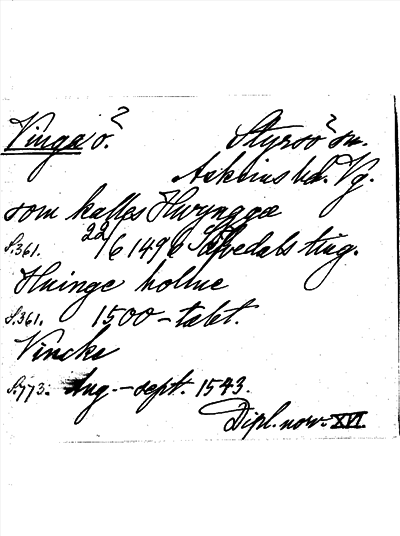 Vinga ö? Styrsö? sn.
Askims hd. Vg.
som kalles Hwynggæ
S.361. 22/6 1496 Sævedals ting.
Huinge holme
S.361. 1500-talet.
Vincke
S.773. Aug.-sept. 1543.
Dipl. norv. XVI.